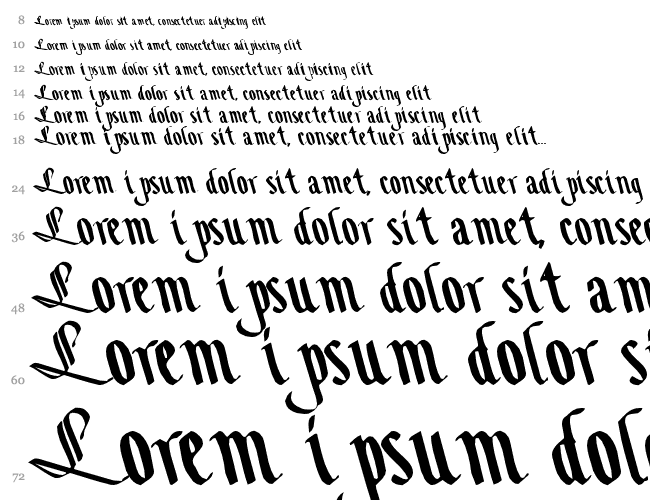 8 Lorem ipsum dolor sit amet, consectetuer adipiscing elit
10 Lorem ipsum dolor sit amet, consectetuer adipiscing elit
12 Lorem ipsum dolor sit amet, consectetuer adipiscing elit
14 Lorem ipsum dolor sit amet, consectetuer adipiscing elit
16 Lorem ipsum dolor sit amet, consectetuer adipiscing elit
18 Lorem ipsum dolor sit amet, consectetuer adipiscing elit...
24 Lorem ipsum dolor sit amet, consectetuer adipiscing
36 Lorem ipsum dolor sit amet, consec
48 Lorem ipsum dolor sit am
60 Lorem ipsum dolor s
72 Lorem ipsum dol